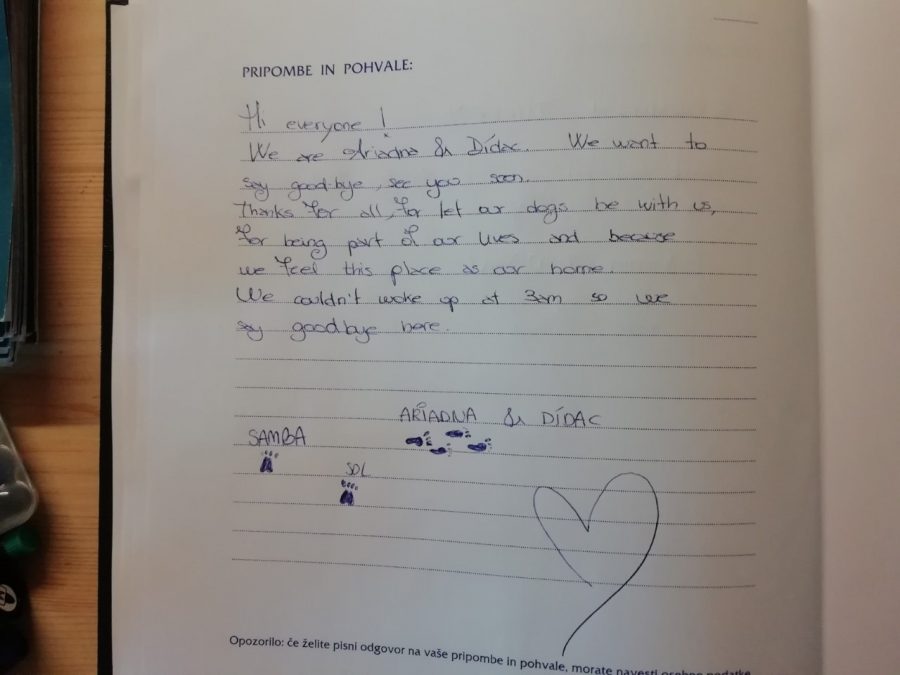 PRIPOMBE IN POHVALE:
Hi everyone!
We are Ariadna & Dídac. We want to
say goodbye, see you soon.
Thanks for all, for let our dogs be with us,
for being part of our lives and because
we feel this place as our home.
We couldn't woke up at 3am so we
say goodbye here.
ARIADNA & DÍDAC
SAMBA
SOL
Opozorilo: če želite pisni odgovor na vaše pripombe in pohvale, morate navesti osebne podatke